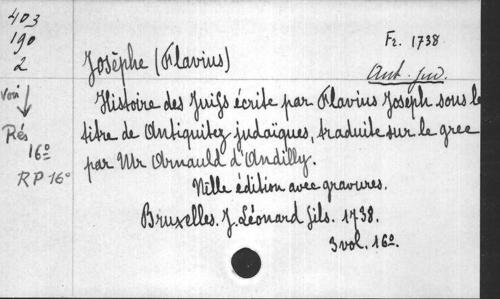 403
190
2
voir
Rés
16º
RP 16º
Fr. 1738
Josèphe (Flavius)
Ant. jud.
Histoire des Juifs écrite par Flavius Joseph sous le
titre de Antiquitez judaïques, traduite sur le grec
par Mr Arnauld d'Andilly.
Nlle édition avec gravures.
Bruxelles. J. Léonard fils. 1738.
3 vol. 16º.